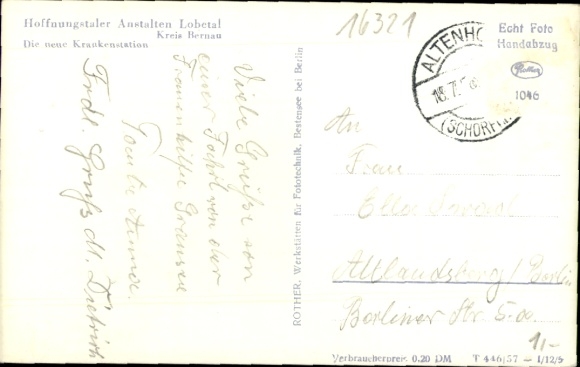 Hoffnungstaler Anstalten Lobetal
Kreis Bernau
Die neue Krankenstation
16321
Echt Foto
Handabzug
Rother
1046
ALTENHO
18.7.
(SCHORFH
ROTHER, Werkstätten für Fototechnik, Bestensee bei Berlin
Viele Grüße von
einer Fahrt von der
Frauenhilfe Gransee
Tante Anna.
Frdl. Gruß M. Dietrich
An
Frau
Ella
Altlandsberg / Berlin
Berliner Str. 5
1,-
Verbraucherpreis 0.20 DM T 446/57 — 1/12/5